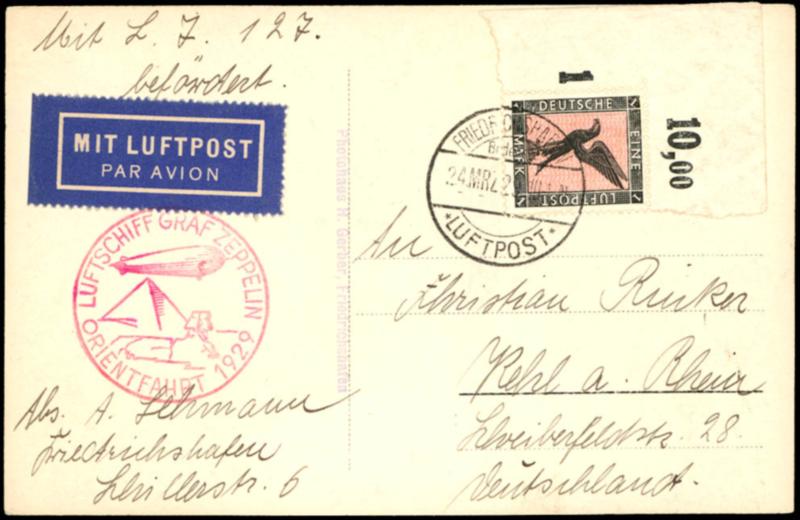 Mit L. Z. 127.
befördert.
MIT LUFTPOST
PAR AVION
LUFTSCHIFF GRAF ZEPPELIN
ORIENTFAHRT 1929
Abs. A. Lehmann
Friedrichshafen
Schillerstr. 6
Photohaus M. Gerber, Friedrichshafen
FRIEDRICHSHAF
24.MRZ.2
*LUFTPOST*
DEUTSCHE
EINE
LUFTPOST
MARK
1
1
1
1
1
10,00
An
Christian Rinker
Kehl a. Rhein
Schreiberfeldstr. 28
Deutschland.